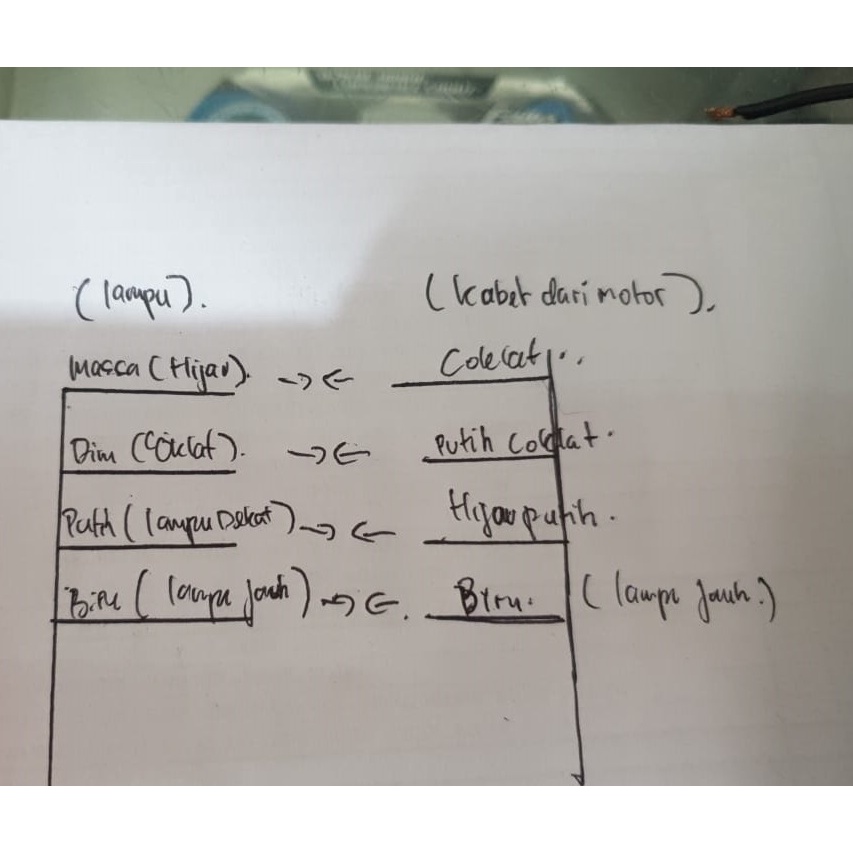 (lampu). (kabel dari motor).
Massa (Hijau). →← Coklat...
Dim (Coklat). →← Putih Coklat.
Putih (lampu Dekat) →← Hijau putih.
Biru (lampu jauh) →←. Biru. (lampu jauh.)